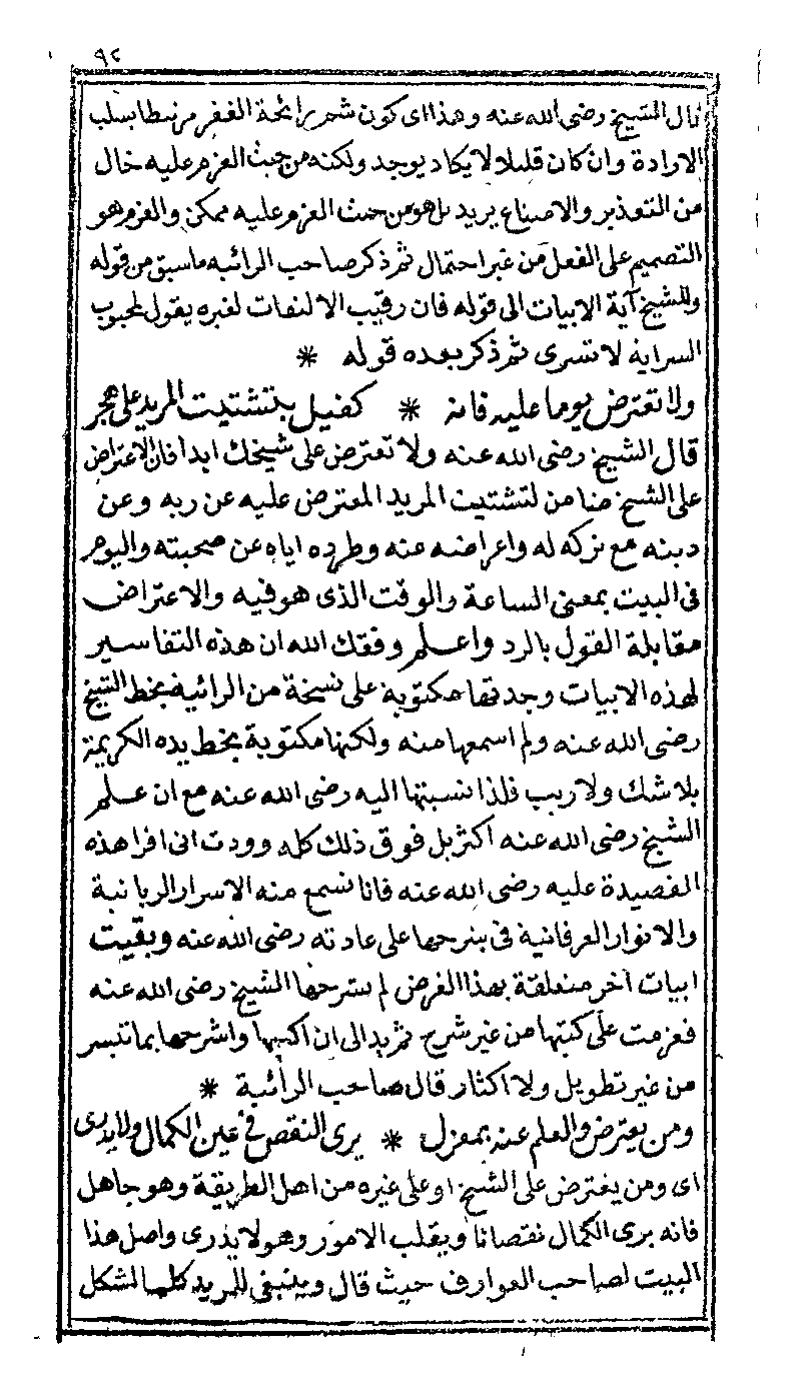 ٩٢
قال الشيخ رضى الله عنه وهذا اى كون شم رائحة الفقر مرتبطا بسلب
الارادة وان كان قليلا لا يكاد يوجد ولكنه من حيث العزم عليه خال
من التعذير والامتناع يريد بل هو من حيث العزم عليه ممكن والعزم هو
التصميم على الفعل من غير احتمال ثم ذكر صاحب الرائيه ماسبق من قوله
وللشيخ آية الابيات الى قوله فان رقيب الالتفات لغيره يقول لمحبوب
السراية لا تسرى ثم ذكر بعده قوله *
ولا تعترض يوما عليه فانه * كفيل بتشتيت المريد على هجر
قال الشيخ رضى الله عنه ولا تعترض على شيخك ابدا فان الاعتراض
على الشيخ ضامن لتشتيت المريد المعترض عليه عن ربه وعن
دينه مع تركه له واعراضه عنه وطرده اياه عن صحبته واليوم
فى البيت بمعنى الساعة والوقت الذى هو فيه والاعتراض
مقابلة القول بالرد واعلم وفقك الله ان هذه التفاسير
لهذه الابيات وجدتها مكتوبة على نسخة من الرائية بخط الشيخ
رضى الله عنه ولم اسمعها منه ولكنها مكتوبة بخط يده الكريمة
بلا شك ولا ريب فلذا نسبتها اليه رضى الله عنه مع ان علم
الشيخ رضى الله عنه اكثر بل فوق ذلك كله وودت انى اقرا هذه
القصيدة عليه رضى الله عنه فانا نسمع منه الاسرار الربانية
والانوار العرفانية فى شرحها على عادته رضى الله عنه وبقيت
ابيات اخر متعلقة بهذا الغرض لم يشرحها الشيخ رضى الله عنه
فعزمت على كتبها من غير شرح ثم بدا لى ان اكتبها واشرحها بما تيسر
من غير تطويل ولا اكثار قال صاحب الرائية *
ومن يعترض والعلم عنه بمعزل * يرى النقص فى عين الكمال ولا يدرى
اى ومن يعترض على الشيخ او على غيره من اهل الطريقة وهو جاهل
فانه يرى الكمال نقصانا ويقلب الامور وهو لا يدرى واصل هذا
البيت لصاحب العوارف حيث قال وينبغى للمريد كلما اشكل